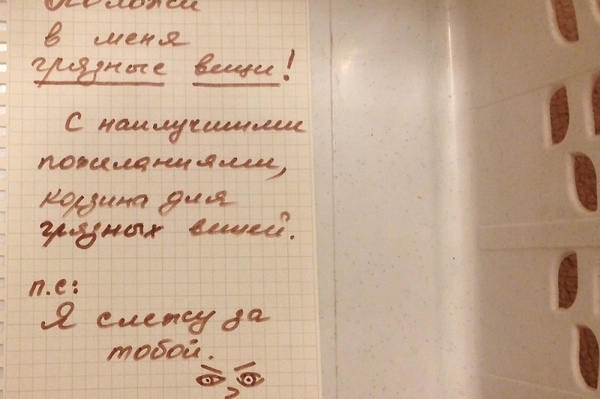 в меня
грязные вещи!
С наилучшими
пожеланиями,
корзина для
грязных вещей.
п.с:
Я слежу за
тобой.